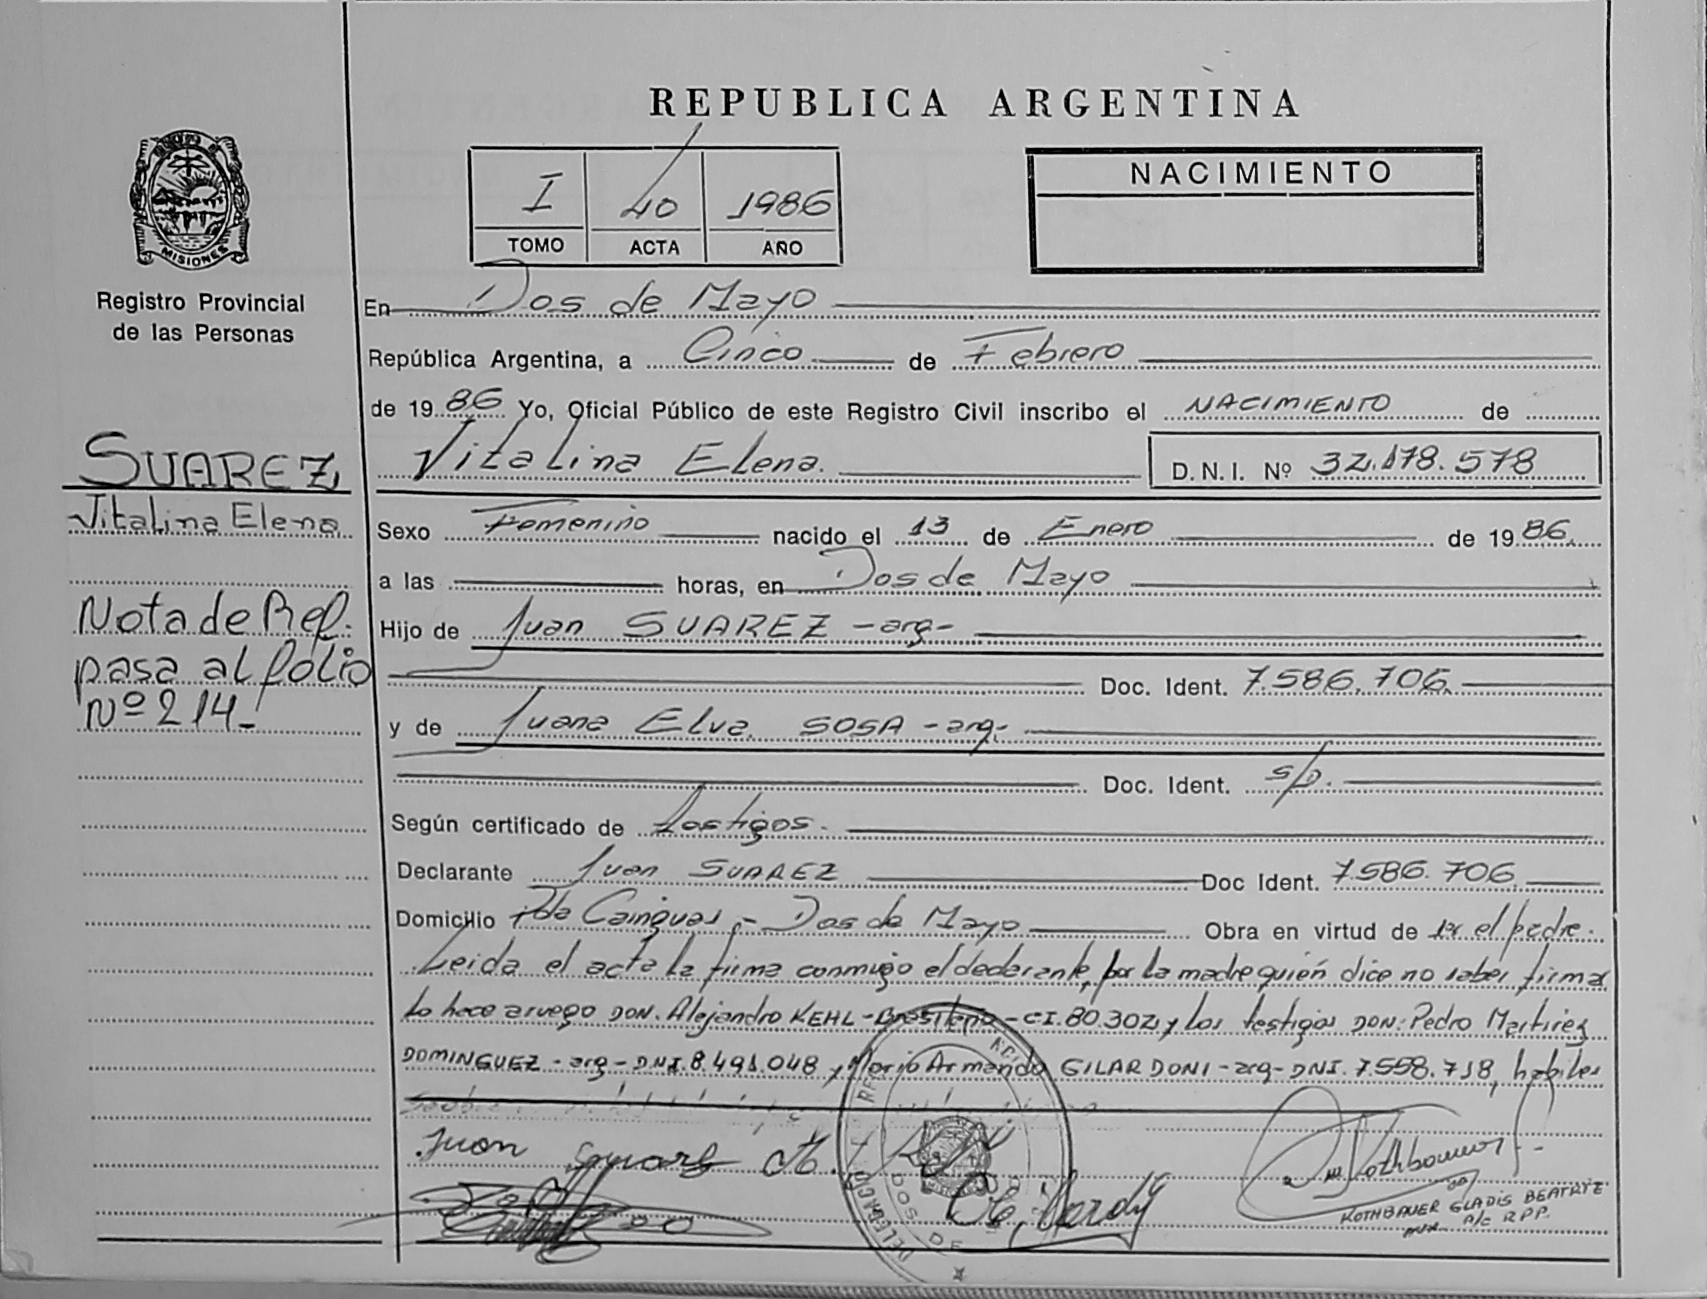 REPUBLICA ARGENTINA
I 40 1986
TOMO ACTA AÑO
NACIMIENTO
MISIONES
Registro Provincial
de las Personas
SUAREZ
Vitalina Elena
Nota de Ref.
pasa al folio
Nº 214-
En Dos de Mayo
República Argentina, a Cinco de Febrero
de 1986 Yo, Oficial Público de este Registro Civil inscribo el NACIMIENTO de
Vitalina Elena. D.N.I. Nº 32.178.578
Sexo Femenino nacido el 13 de Enero de 1986.
a las horas, en Dos de Mayo
Hijo de Juan SUAREZ -arg-
Doc. Ident. 7.586.706.
y de Juana Elva SOSA -arg-
Doc. Ident. s/D.
Según certificado de testigos.
Declarante Juan SUAREZ Doc Ident. 7.586.706.
Domicilio Pda Cainguas - Dos de Mayo Obra en virtud de ser el padre.
Leida el acta la firma conmigo el declarante, por la madre quién dice no saber firmar
lo hace a ruego DON. Alejandro KEHL - Brasileño - CI. 80.302 y los testigos DON: Pedro Martirez
DOMINGUEZ - arg - DNI. 8.491.048 y Mario Armando GILARDONI - arg - DNI. 7.558.718, habiles
Juan
KOTHBAUER GLADIS BEATRIZ
A/C R.P.P.
DOS DE